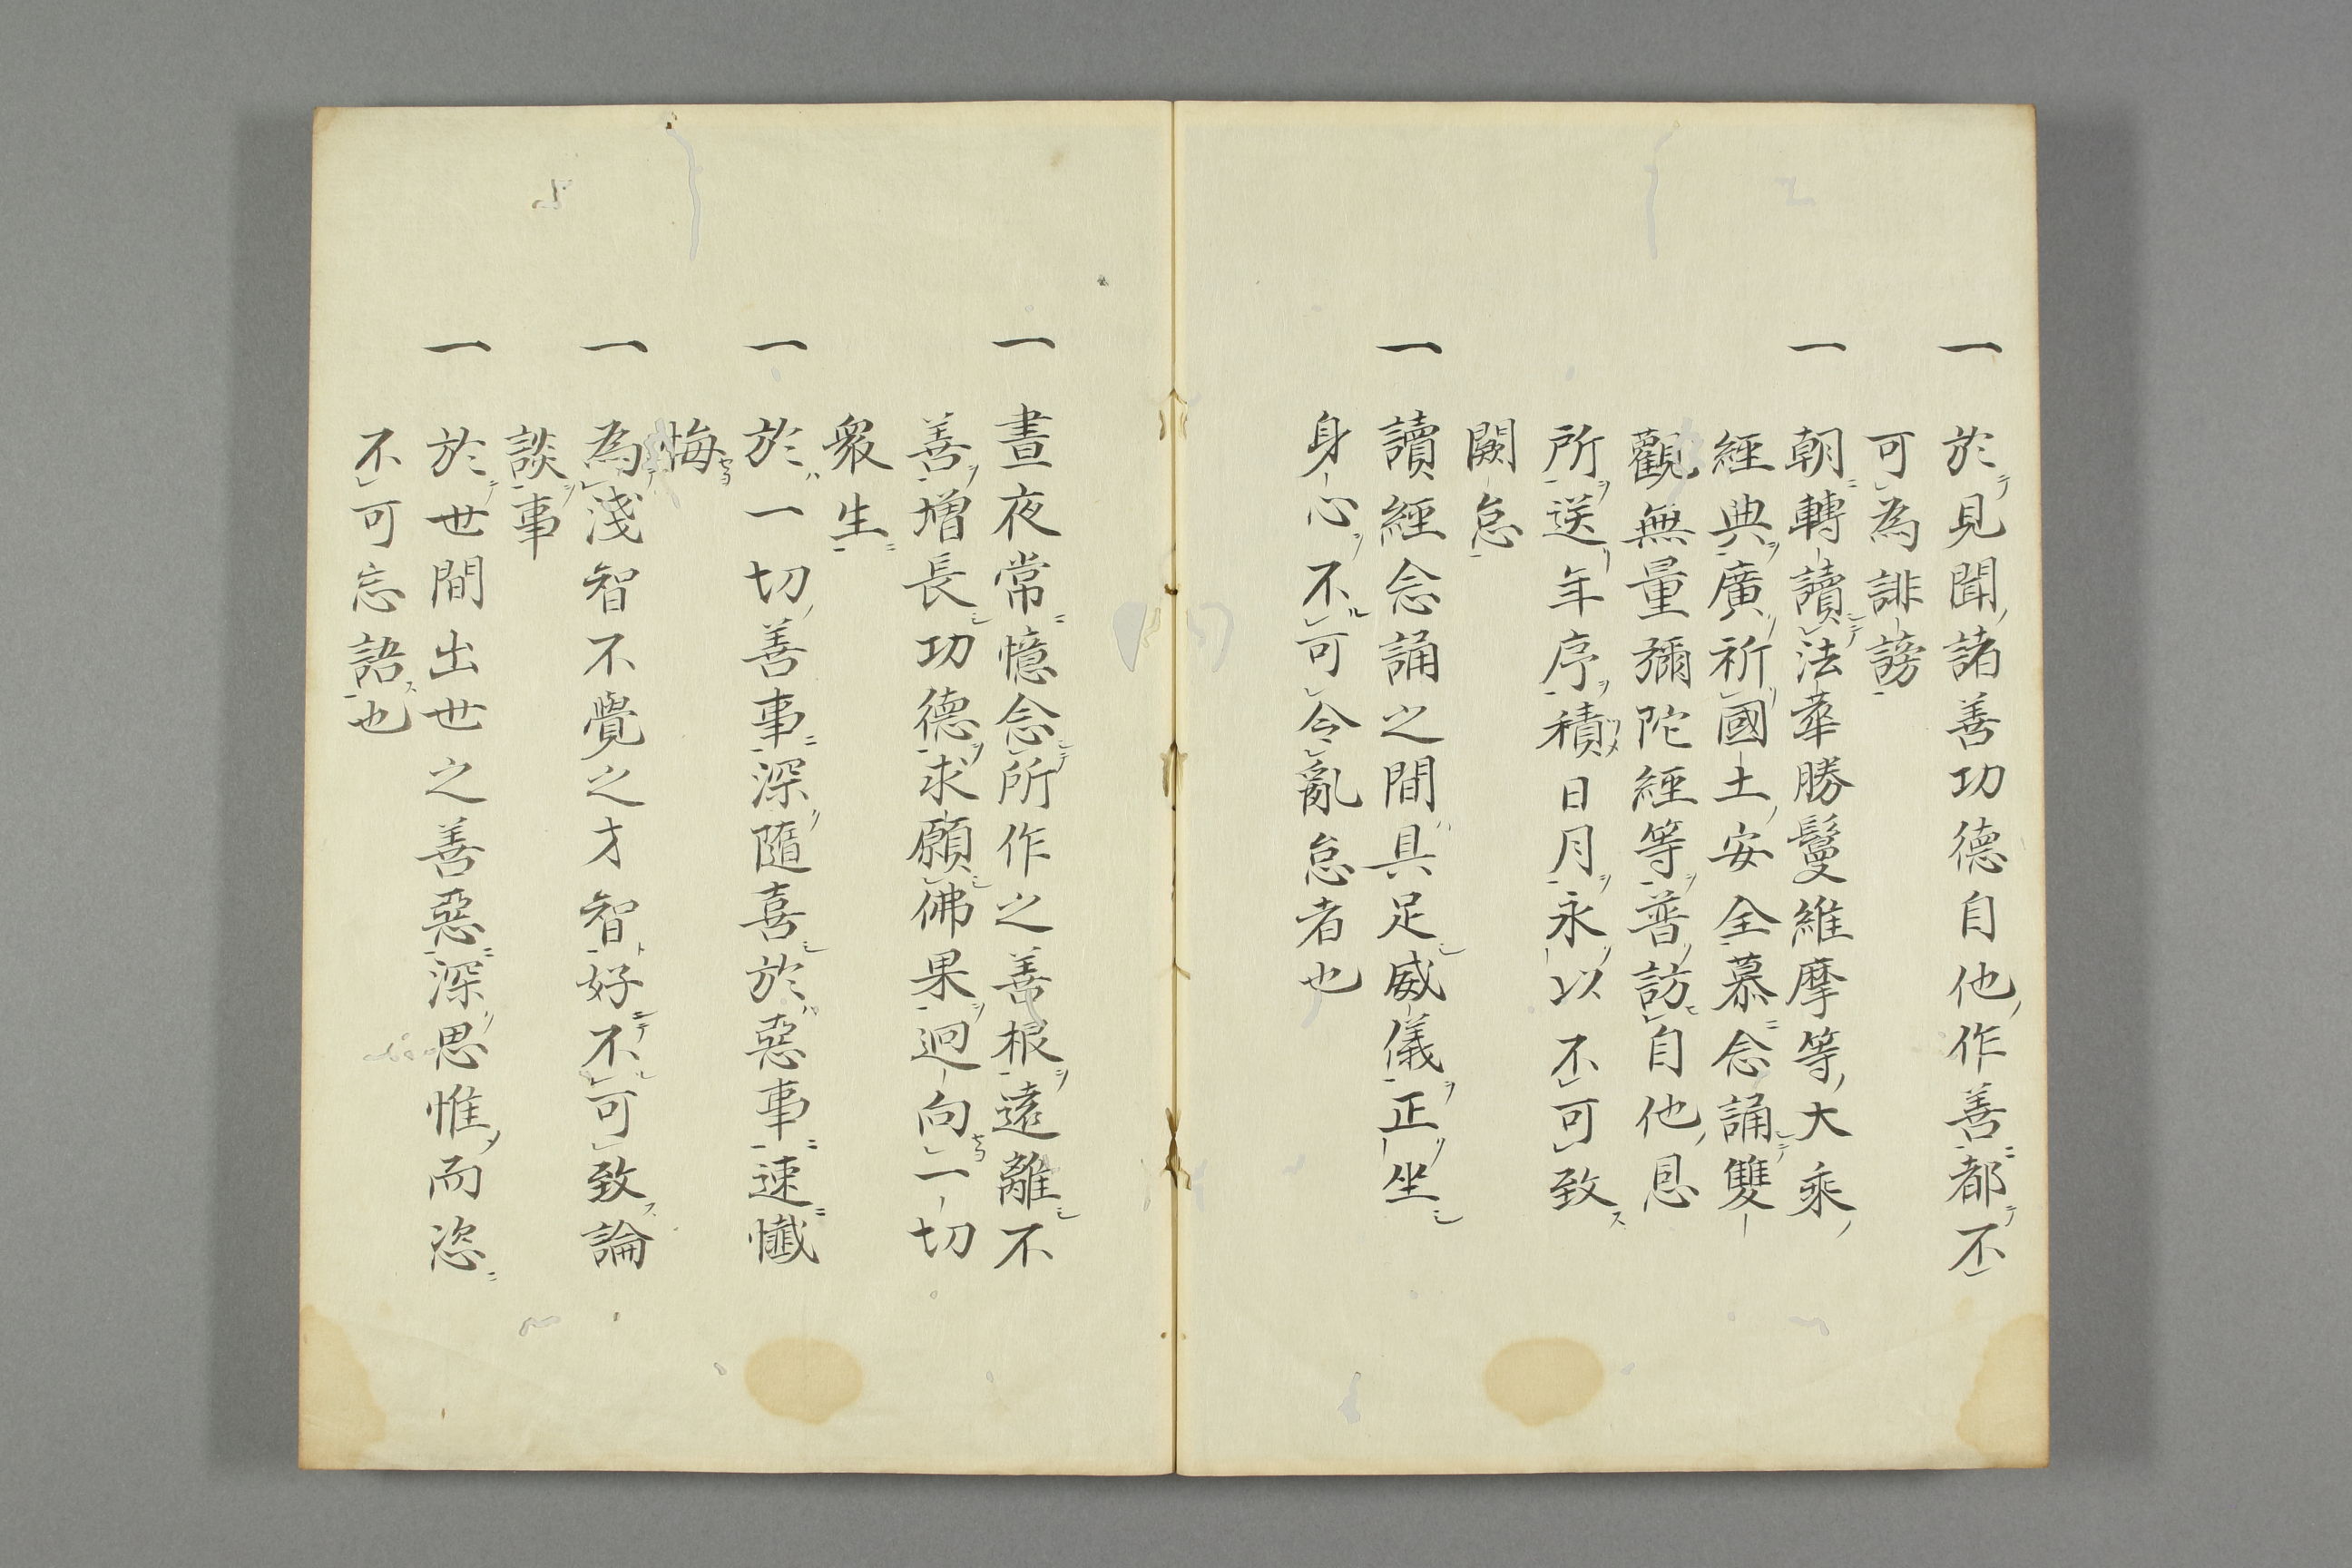 一 於見聞諸善功德自他作善都不
可為誹謗
一 朝轉讀法華勝鬘維摩等大乘
經典廣祈國土安全慕念誦雙
觀無量彌陀經等普訪自他恩
所送年序積日月永以不可致
闕怠
一 讀經念誦之間具足威儀正坐
身心不可令亂怠者也
一 晝夜常憶念所作之善根遠離不
善增長功德求願佛果迴向一切
眾生
一 於一切善事深隨喜於惡事速懺
悔
一 為淺智不覺之才智好不可致論
談事
一 於世間出世之善惡深思惟而恣
不可忘語也